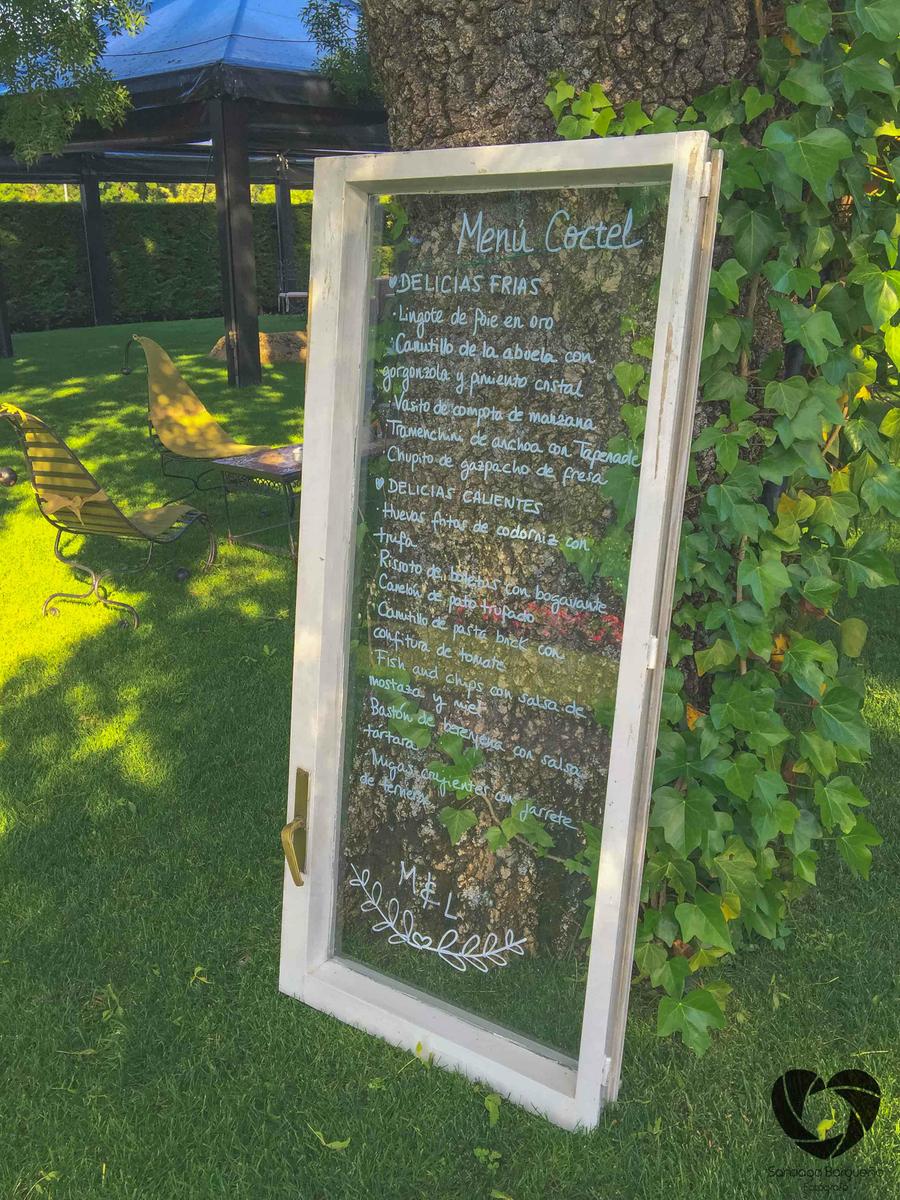 Menú Coctel
♥DELICIAS FRIAS
·Lingote de foie en oro
·Canutillo de la abuela con
gorgonzola y pimiento cristal
·Vasito de compota de manzana
Tramenchini de anchoa con Tapenade
·Chupito de gazpacho de fresa
♥DELICIAS CALIENTES
·Huevos fritos de codorniz con
trufa
Rissoto de boletus con bogavante
Canelón de pato trufado
·Canutillo de pasta brick con
confitura de tomate
Fish and chips con salsa de
mostaza y miel
Bastón de berenjena con salsa
tartara
·Migas crujientes con jarrete
de ternera
M & L
Santiago Borgueño
Fotografía